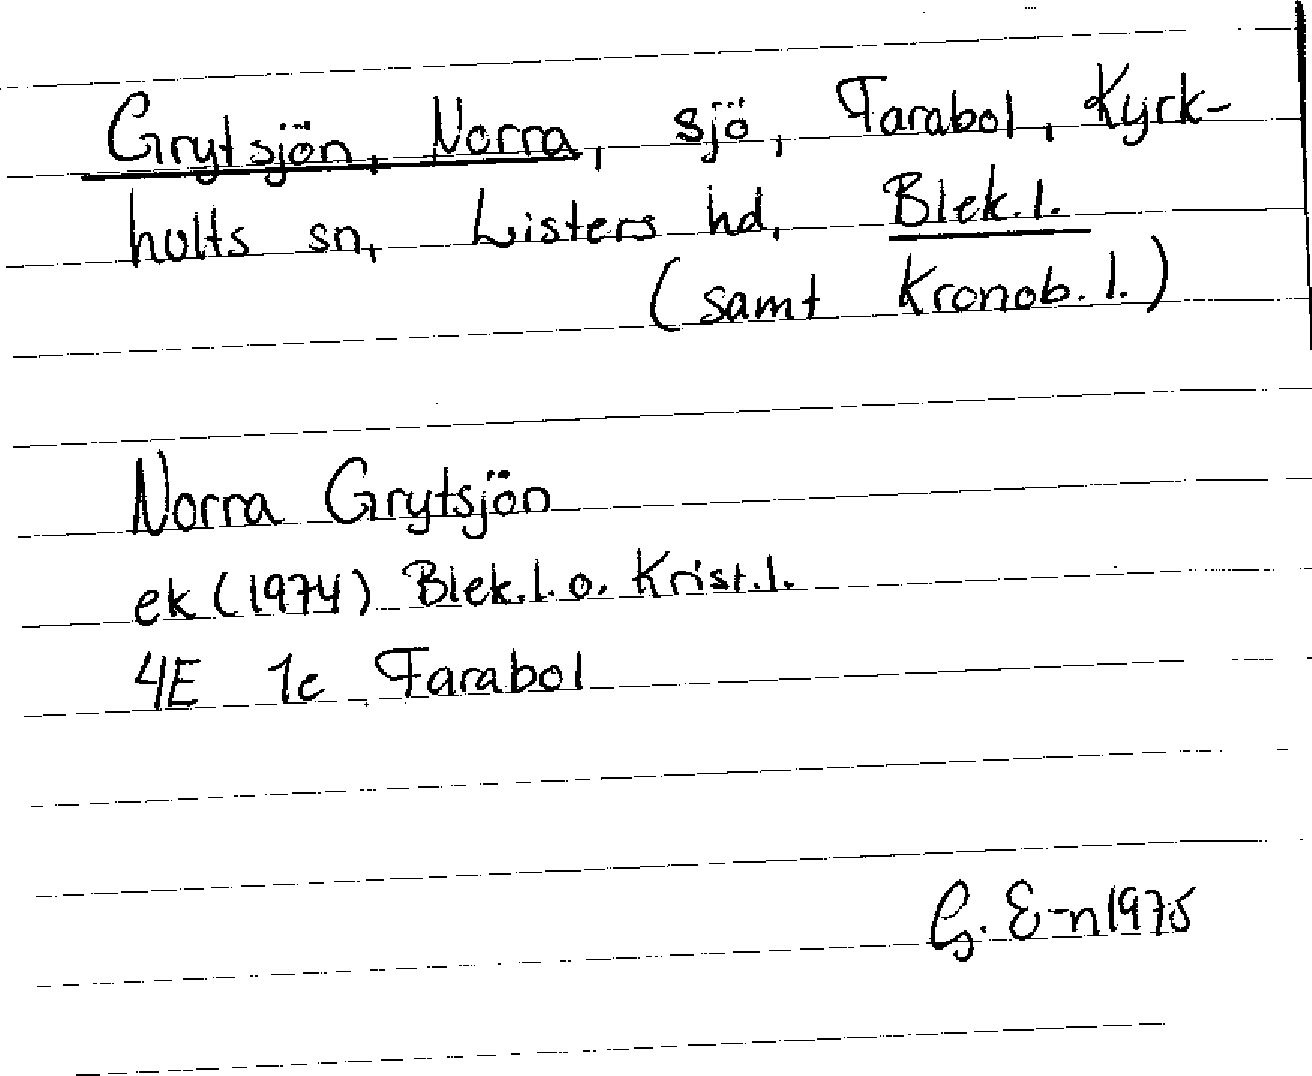 Grytsjön, Norra, sjö, Farabol, Kyrk-
hults sn, Listers hd, Blek.l.
(samt Kronob. l.)
Norra Grytsjön
ek (1974) Blek.l. o. Krist.l.
4E 1c Farabol
G. E-n 1975